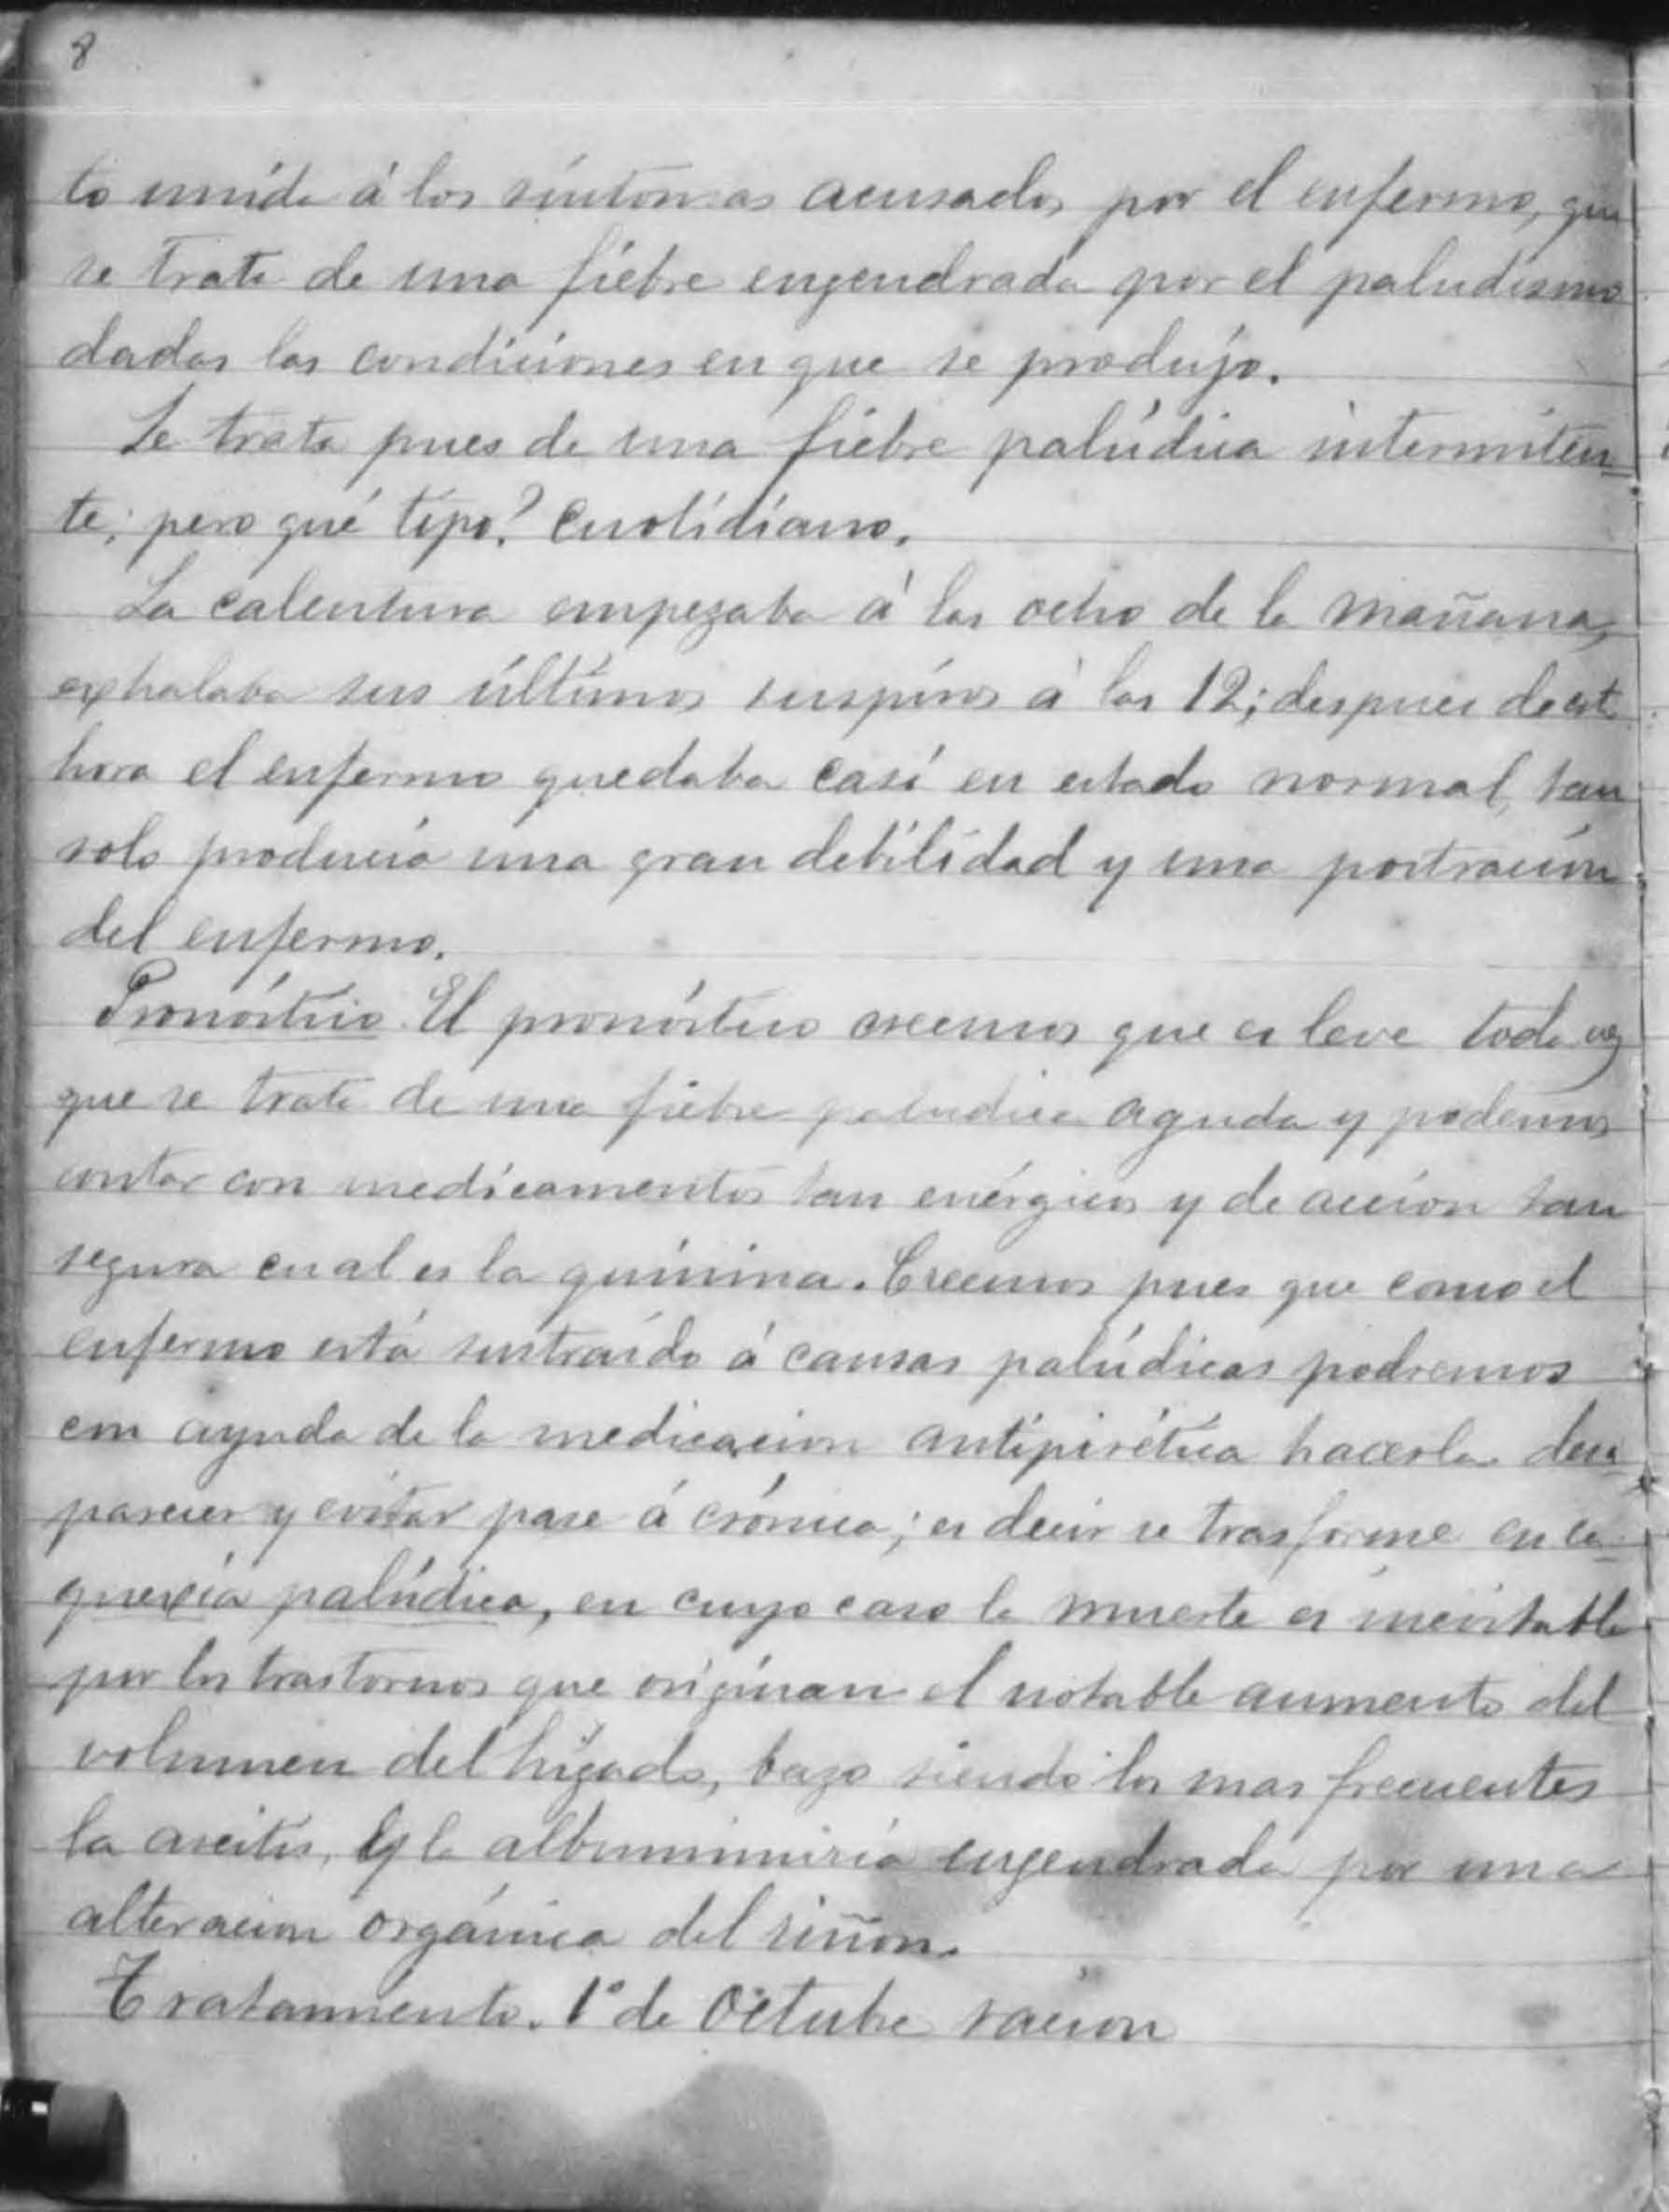 8
to unido á los síntomas acusados por el enfermo, que
se trata de una fiebre engendrada por el paludismo
dadas las condiciones en que se produjo.
Se trata pues de una fiebre palúdica intermiten-
te; pero qué tipo? Cuotidiano.
La calentura empezaba á las ocho de la mañana,
exhalaba sus últimos suspiros á las 12; despues de est
hora el enfermo quedaba casi en estado normal, tan
solo producia una gran debilidad y una postración
del enfermo.
Pronóstico El pronóstico creemos que es leve toda vez
que se trata de una fiebre paludica aguda y podemos
contar con medicamentos tan enérgicos y de accion tan
segura cual es la quinina. Creemos pues que como el
enfermo está sustraido á causas palúdicas podremos
con ayuda de la medicacion antipirética hacerla desa-
parecer y evitar pase á crónica; es decir se trasforme en ca-
quexia palúdica, en cuyo caso la muerte es inevitable
por los trastornos que originan el notable aumento del
volumen del higado, bazo siendo los mas frecuentes
la ascitis, y la albuminuria engendrada por una
alteracion orgánica del riñon.
Tratamiento. 1º de Octubre racion